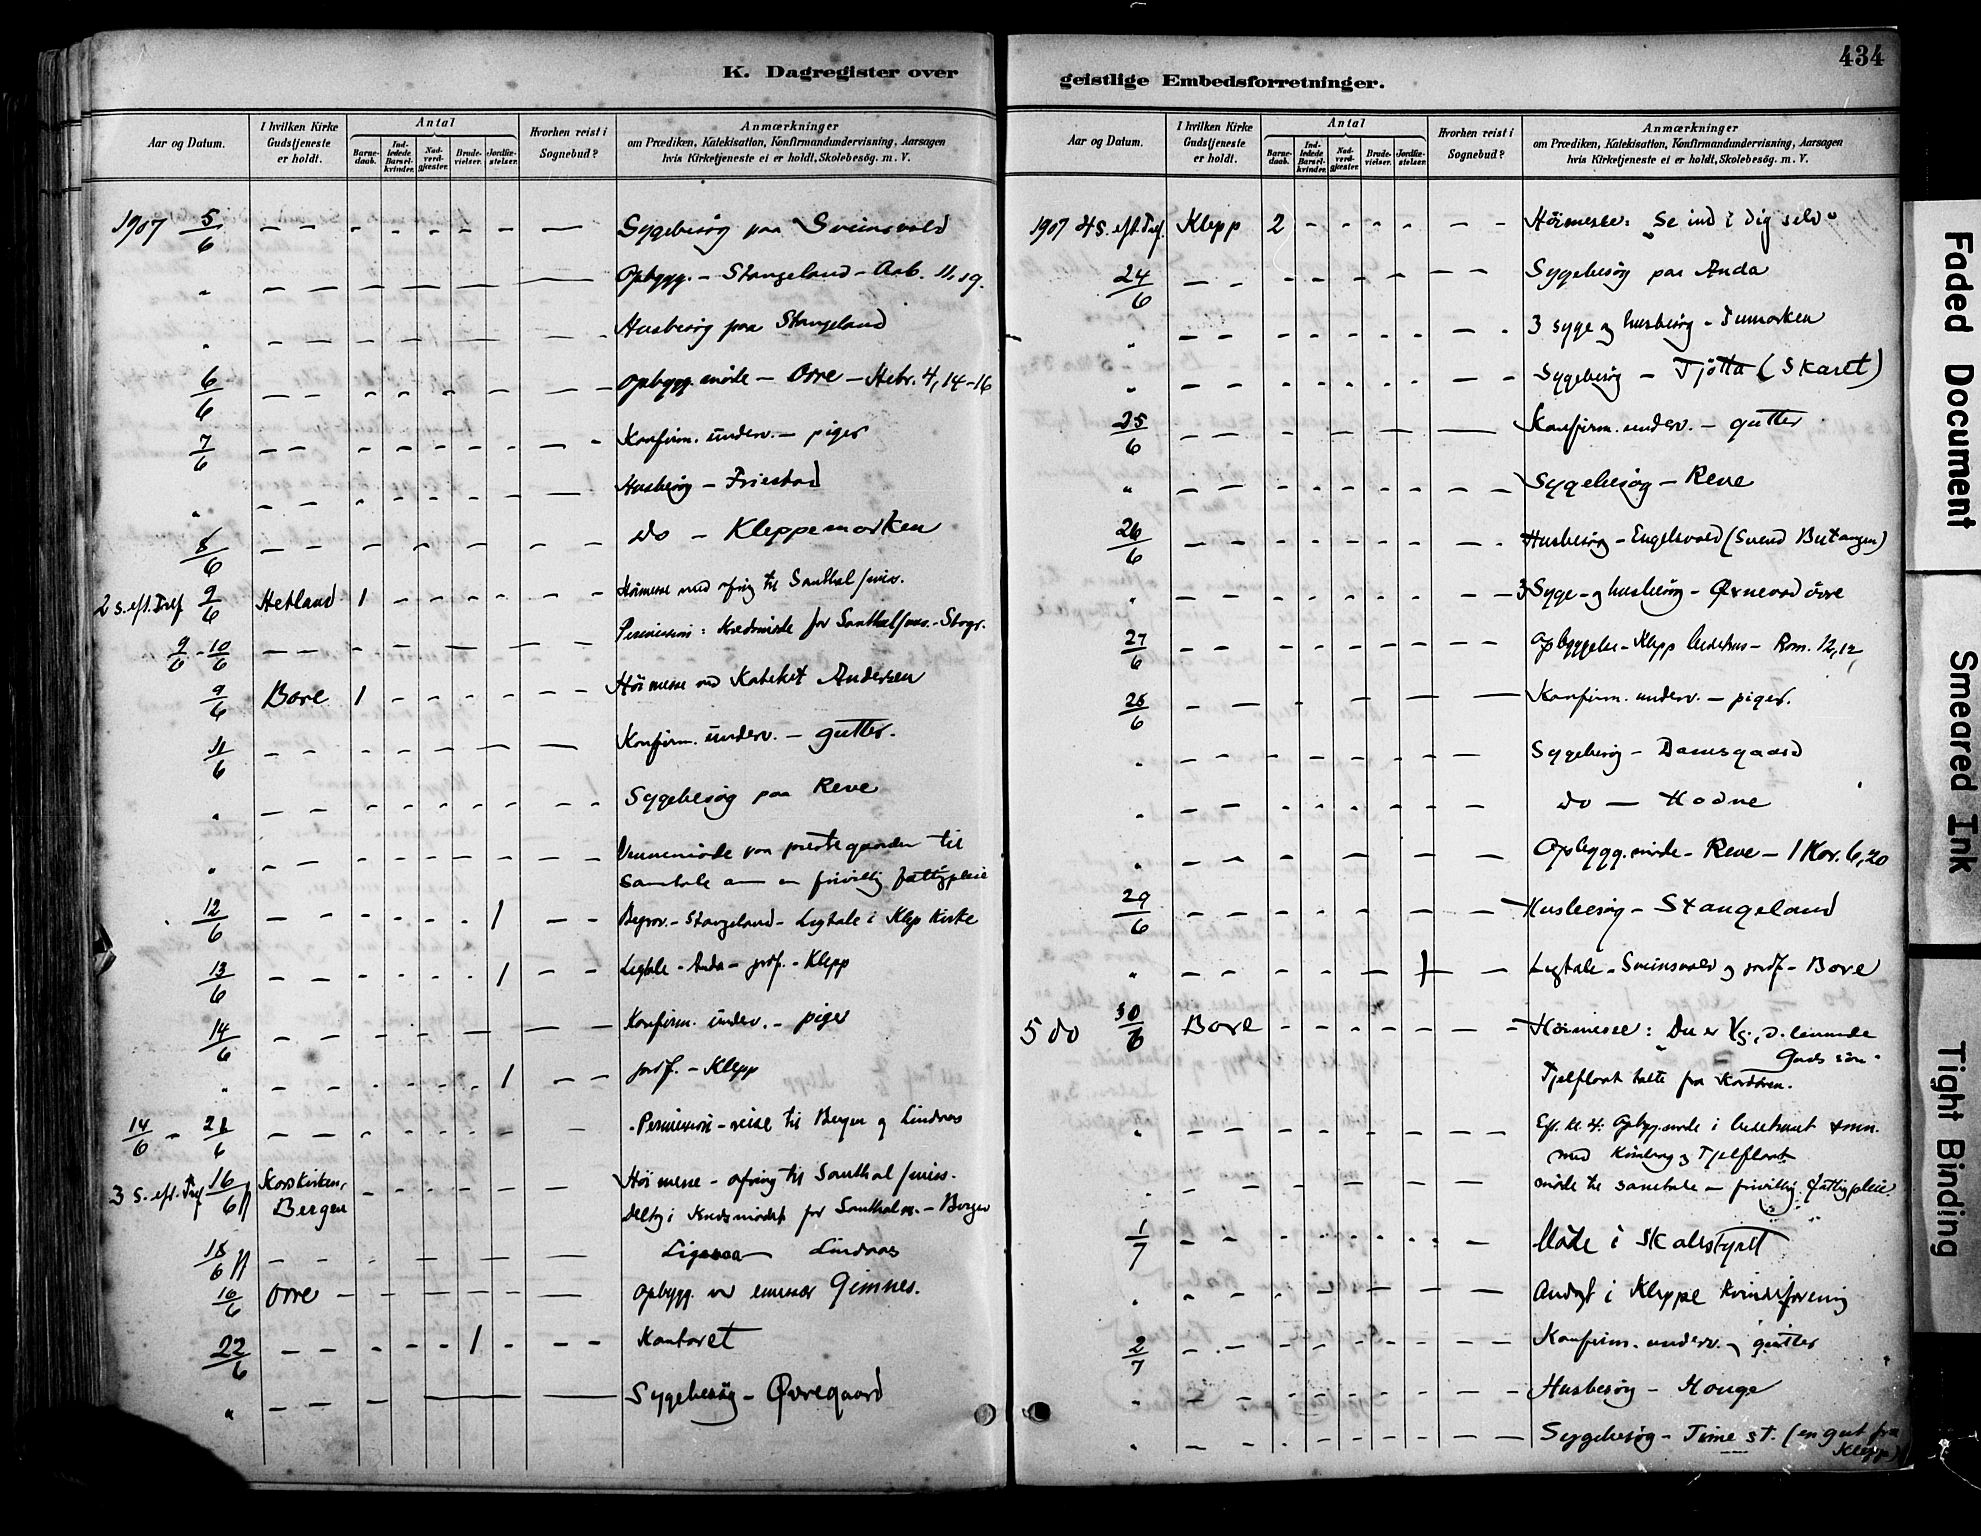 K. Dagregister over
Aar og Datum.
I hvilken Kirke Gudstjeneste er holdt.
Antal
Barne-daab.
Ind-ledede Barsel-kvinder.
Nad-verd-gjester.
Brude-vielser.
Jordfæ-stelser.
Hvorhen reist i Sognebud?
Anmærkninger
om Prædiken, Katekisation, Konfirmandundervisning, Aarsagen
hvis Kirketjeneste ei er holdt, Skolebesög. m. V.
1907 5/6 Sygebesøg paa Sveinsvold
" Opbygg. - Stangeland - Aab. 11,19.
" Husbesøg paa Stangeland
6/6 Opbygg. møde - Orre - Hebr. 4, 14-16
7/6 Konfirm. underv. - piger
" Husbesøg - Friestad
8/6 do - Kleppemarken
2 s. eft. Tref 9/6 Hetland 1 Höimesse med ofring til Santhalmis.
9/6 - 10/6 Permission: Kredsmøde for Santhalmis.
9/6 Bore 1 Höimesse ved Kateket Andersen
11/6 Konfirm. underv. - gutter.
" Sygebesøg paa Reve
" Vennemøde paa prestegaarden til
samtale om en frivillig fattigpleie
12/6 1 Stangeland - Ligtale i Klep Kirke
13/6 1 Ligtale - Anda - jordf. - Klepp
14/6 Konfirm. underv. - piger
" 1 jordf. - Klepp
14/6 - 21/6 Permission - reise til Bergen og Lindaas
3 s. eft. Tref 16/6 Korskirken, Höimesse - ofring til Santhalmiss.
Bergen Deltog i Kredsmødet for Santhalm. - Bergen
18/6 Lindaas
16/6 Orre Opbygg. ved emissær Gimnes.
22/6 1 Kontoret
" Sygebesøg - Øvregaard
434
geistlige Embedsforretninger.
Aar og Datum.
I hvilken Kirke Gudstjeneste er holdt.
Antal
Barne-daab.
Ind-ledede Barsel-kvinder.
Nad-verd-gjester.
Brude-vielser.
Jordfæ-stelser.
Hvorhen reist i Sognebud?
Anmærkninger
om Prædiken, Katekisation, Konfirmandundervisning, Aarsagen
hvis Kirketjeneste ei er holdt, Skolebesög. m. V.
1907 4 s. eft. Tref. Klepp 2 Höimesse: "Se ind i dig selv"
24/6 Sygebesøg paa Anda
" 3 syge og husbesøg - Tumarken
" Sygebesøg - Tjøtta (Skaret)
25/6 Konfirm. underv. - gutter
" Sygebesøg - Reve
26/6 Husbesøg - Engelsvold (Svend Butangen)
" 3 Syge- og husbesøg -
27/6 Opbyggelse - Klepp bedehus - Rom. 12,12
28/6 Konfirm. underv. - piger.
" Sygebesøg - Damsgaard
" do - Hodne
" Opbygg. møde - Reve - 1 Kor. 6,20
29/6 Husbesøg - Stangeland
" 1 Ligtale - Sveinsvold og jordf. - Bore
5 do 30/6 Bore Höimesse: "Du er Kr., d. levende
Guds søn"
Tjelflaat talte fra Kordøren.
" Eft. kl. 4: Opbyg. møde i bedehuset
med og Tjelflaat
" møde til samtale om frivillig fattigpleie.
1/7 Møde i Skolestyret
" Andagt i Kleppe Kvindeforening
2/7 Konfirm. underv. - gutter
" Husbesøg - Houge
" Sygebesøg - Time st. (en gut fra
Klepp)
Faded Document
Smeared Ink
Tight Binding